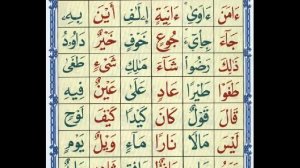 ءَامَنَ ءَاوَىٰ ءَانِيَةٍ إِۦلَٰفِ أَيْنَ بِهِۦ
جَآءَ جِاْىٓءَ جُوعٍ خَوْفٍ خَيْرٌ دَاوُۥدُ
ذَٰلِكَ رَضُوا۟ شَآءَ مَٰلِكِ شَىْءٍ طَغَىٰ
طَغَوْا۟ طَيْرًا عَادٍ عَلَىٰ عَيْنٌ فِيهِ
قَالَ قَوْلٌ كَانَ كَيْدًا كَيْفَ لَوْحٍ
لَيْسَ مَالًا نَارًا مَآءً وَيْلٌ يَوْمٍ